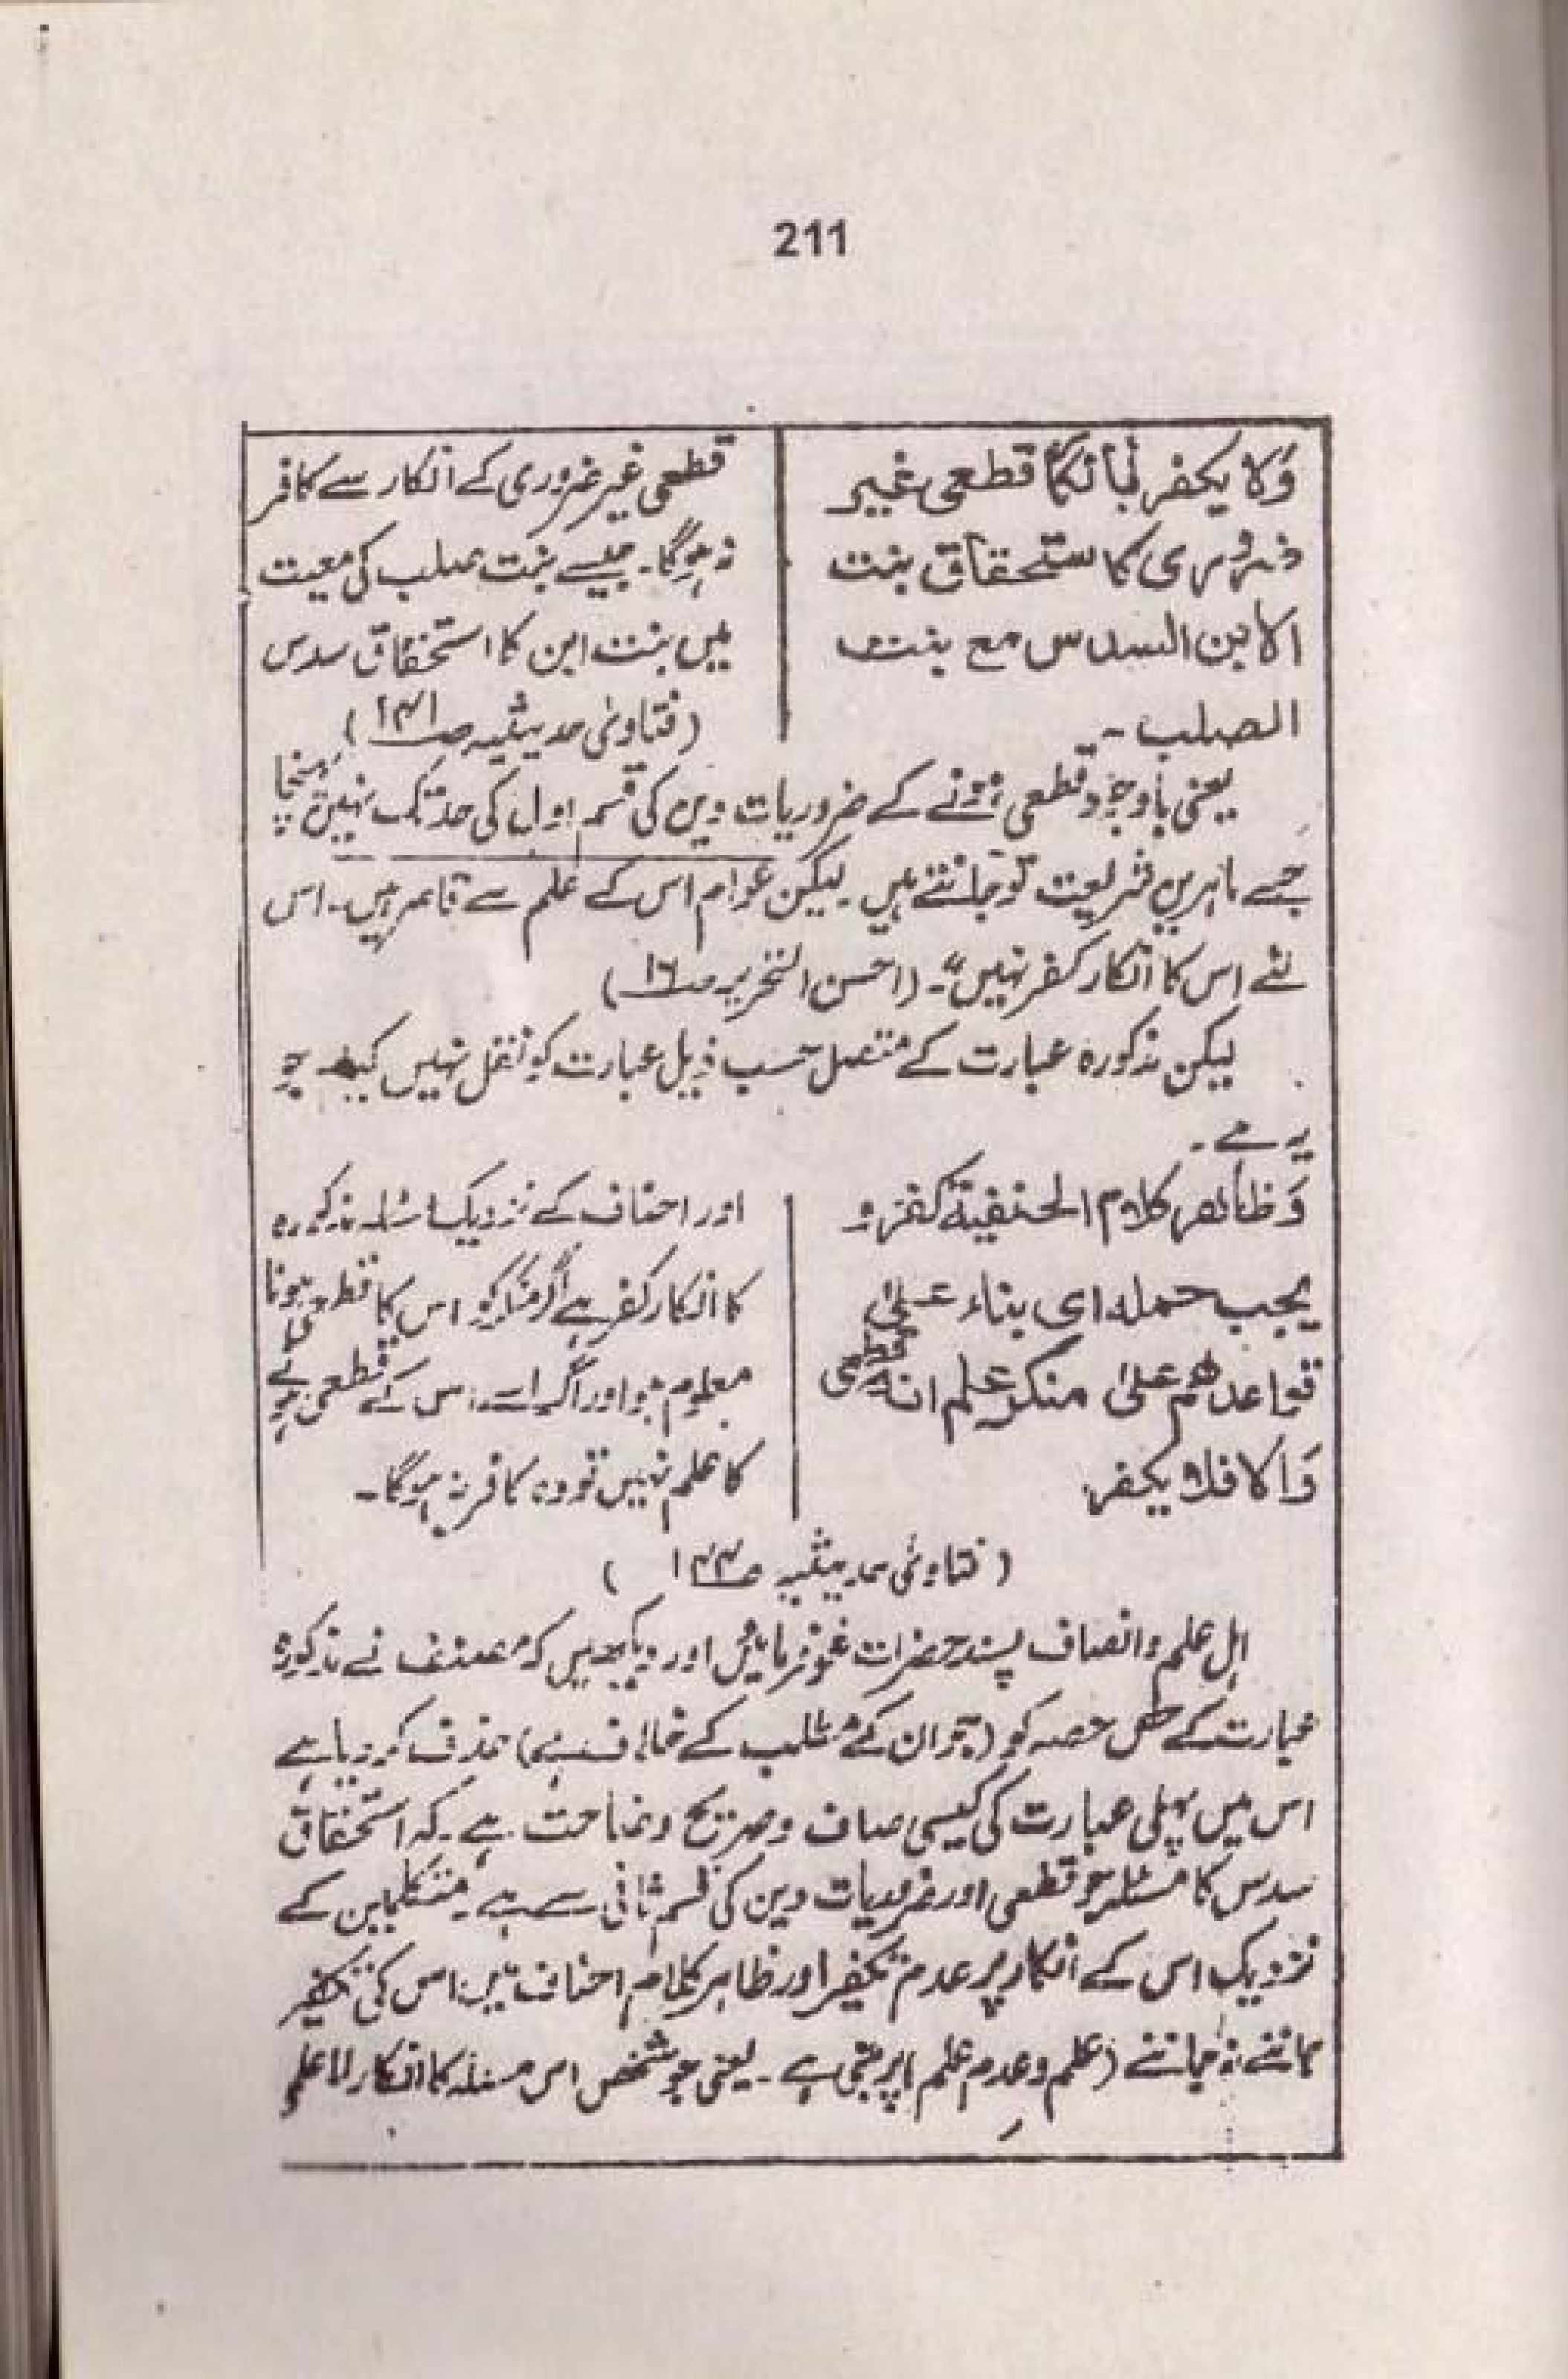 211
وَلا يكفر بانكار قطعى غير
ضرورى كاستحقاق بنت
الابن السدس مع بنت
الصلب -
قطعی غیر ضروری کے انکار سے کافر
نہ ہوگا۔ جیسے بنت صلب کی معیت
میں بنت ابن کا استحقاق سدس
(فتاویٰ حدیثیہ صـ۱۴۱)
یعنی باوجود قطعی ہونے کے ضروریات دین کی قسم اول کی حد تک نہیں پہنچا
جسے ماہرین شریعت تو جانتے ہیں۔ لیکن عوام اس کے علم سے قاصر ہیں۔ اس
لئے اس کا انکار کفر نہیں"۔ (احسن التحریر صـ۱۶)
لیکن مذکورہ عبارت کے متصل حسب ذیل عبارت کو نقل نہیں کیا۔ جو
یہ ہے۔
وَظاهر كلام الحنفية كفره
يجب حمله اى بناء على
قواعدهم على منكر علم انه قطعى
وَالا فلا يكفر
اور احناف کے نزدیک مسئلہ مذکورہ
کا انکار کفر ہے اگر منکر کو اس کا قطعی ہونا
معلوم ہو اور اگر اسے اس کے قطعی ہونے
کا علم نہیں تو وہ کافر نہ ہوگا۔
(فتاویٰ حدیثیہ صـ۱۴۴)
اہل علم و انصاف پسند حضرات غور فرمائیں اور دیکھیں کہ مصنف نے مذکورہ
عبارت کے حصہ کو (جو ان کے مطلب کے خلاف ہے) حذف کر دیا ہے
اس میں پہلی عبارت کی کیسی صاف و صریح وضاحت ہے۔ کہ استحقاق
سدس کا مسئلہ جو قطعی اور ضروریات دین کی قسم ثانی سے ہے۔ متکلمین کے
نزدیک اس کے انکار پر عدم تکفیر اور ظاہر کلام احناف میں اس کی تکفیر
جاننے نہ جاننے (علم و عدم علم) پر مبنی ہے۔ یعنی جو شخص اس مسئلہ کا انکار لاعلمی